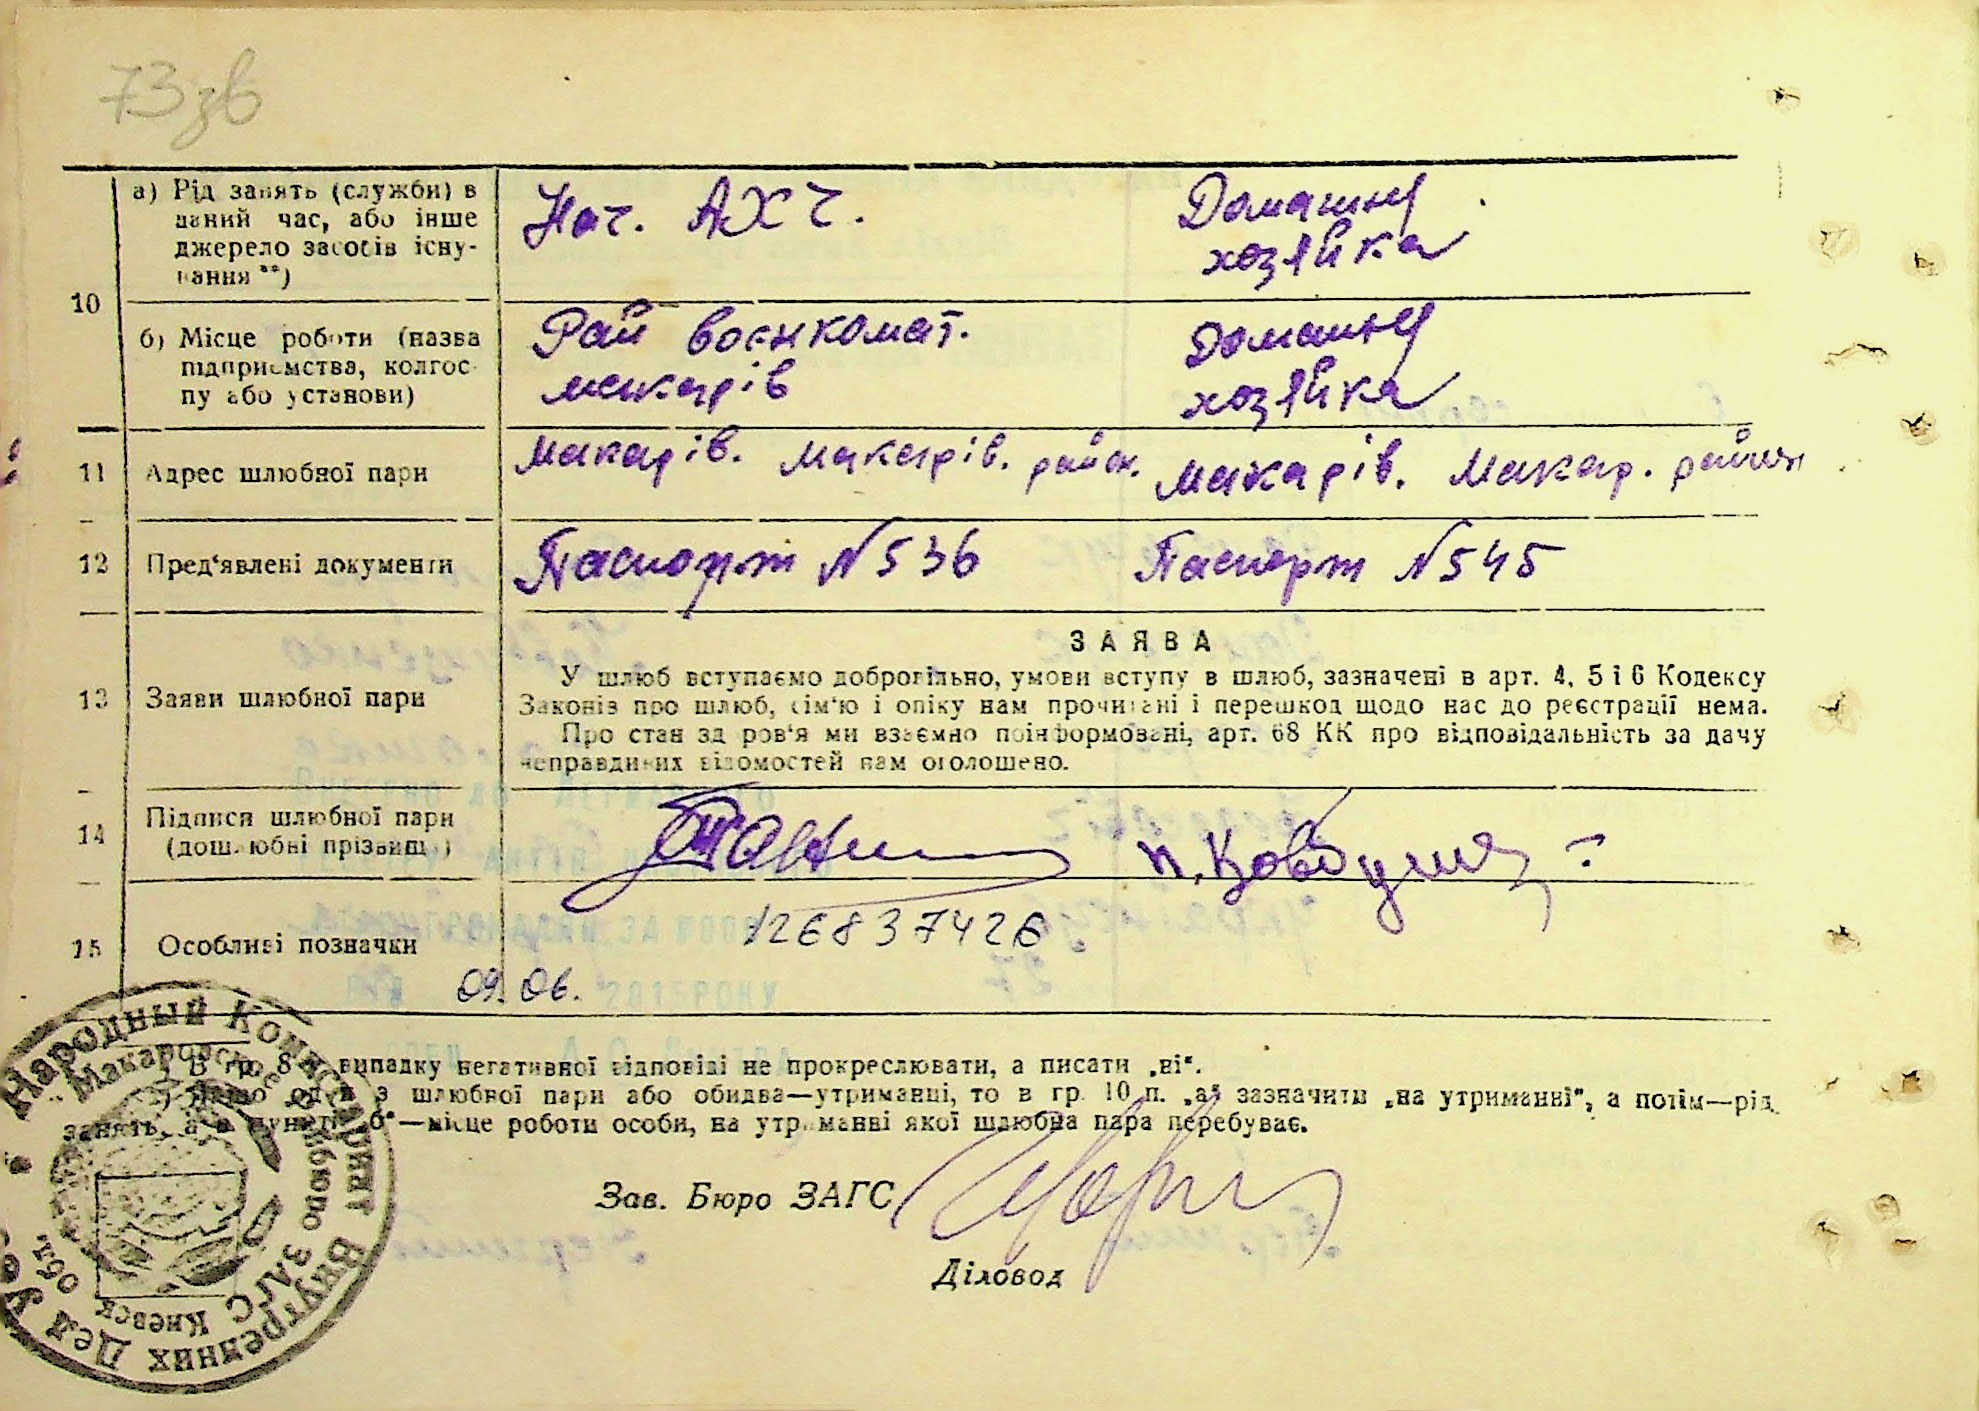 73зв
10
а) Рід занять (служби) в
даний час, або інше
джерело засобів існу-
вання **)
Нач. АХЧ.
Домашня
хозяйка
б) Місце роботи (назва
підприємства, колгос-
пу або установи)
Рай воєнкомат.
макарів
Домашня
хозяйка
11 Адрес шлюбної пари
Макарів. Макарів. район.
Макарів. Макар. район
12 Пред'явлені документи
Паспорт N 536
Паспорт N 545
13 Заяви шлюбної пари
ЗАЯВА
У шлюб вступаємо добровільно, умови вступу в шлюб, зазначені в арт. 4, 5 і 6 Кодексу
Законів про шлюб, сім'ю і опіку нам прочитані і перешкод щодо нас до реєстрації нема.
Про стан здоров'я ми взаємно поінформовані, арт. 68 КК про відповідальність за дачу
неправдивих відомостей нам оголошено.
14 Підписи шлюбної пари
(дошлюбні прізвища)
15 Особливі позначки
126837426
09.06.
2015 РОКУ
*) В гр. 8 у випадку негативної відповіді не прокреслювати, а писати „ні“.
**) Якщо один з шлюбної пари або обидва—утриманні, то в гр. 10 п. „а“ зазначити „на утриманні“, а потім—рід
занять, а в пункті „б“—місце роботи особи, на утриманні якої шлюбна пара перебуває.
Зав. Бюро ЗАГС
Діловод
Народный Комиссариат Внутренних Дел
Макаровское бюро ЗАГС Киевск обл.